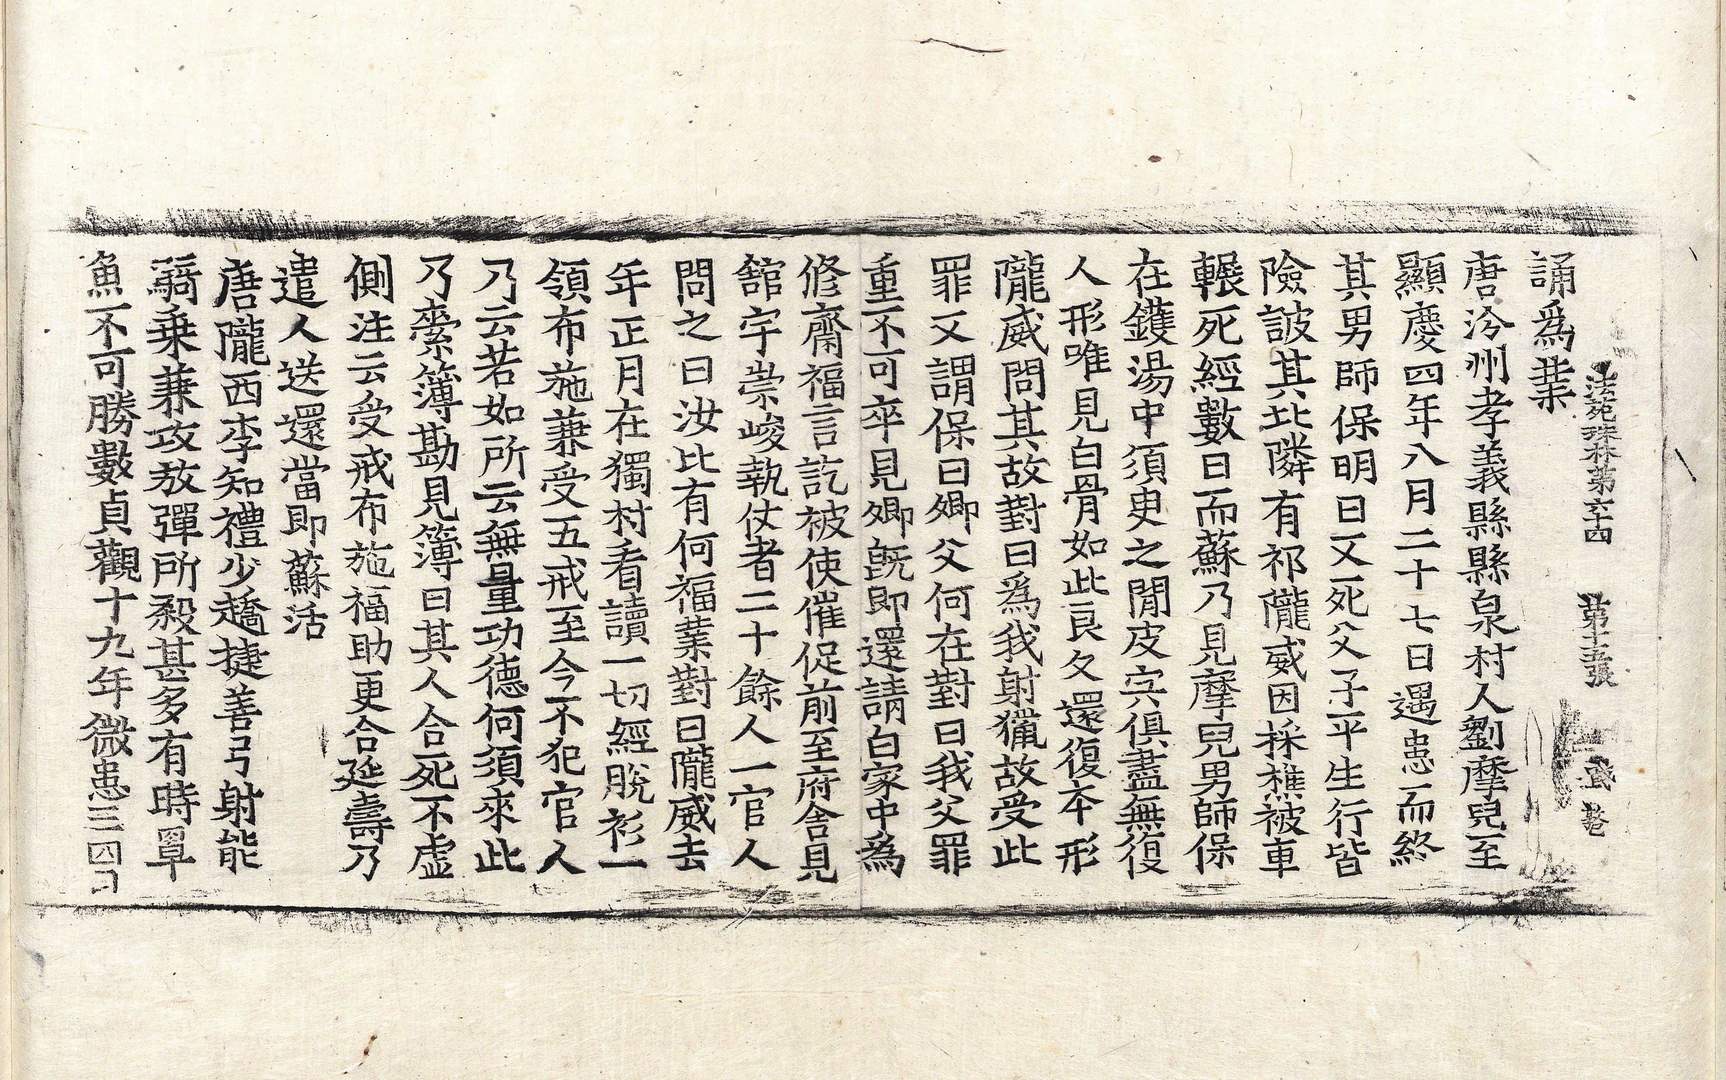 法苑珠林第六十四　第十五張
誦爲業
唐汾州孝義縣縣泉村人劉摩兒至
顯慶四年八月二十七日遇患而終
其男師保明日又死父子平生行皆
險詖其北隣有祁隴威因採樵被車
輾死經數日而蘇乃見摩兒男師保
在鑊湯中須臾之閒皮宍俱盡無復
人形唯見白骨如此良久還復本形
隴威問其故對曰爲我射獵故受此
罪又謂保曰卿父何在對曰我父罪
重不可卒見卿旣即還請白家中爲
修齋福言訖被使催促前至府舍見
舘宇崇峻執仗者二十餘人一官人
問之曰汝比有何福業對曰隴威去
年正月在獨村看讀一切經脫衫一
領布施兼受五戒至今不犯官人
乃云若如所云無量功德何須來此
乃索簿勘見簿曰其人合死不虛
側注云受戒布施福助更合延壽乃
遣人送還當即蘇活
唐隴西李知禮少趫捷善弓射能
騎乗兼攻放彈所殺甚多有時罩
魚不可勝數貞觀十九年微患三四日